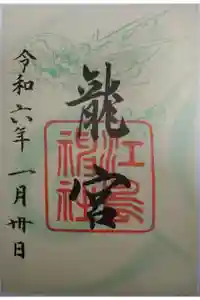 龍宮
江島
神社
令和六年 一月卅日